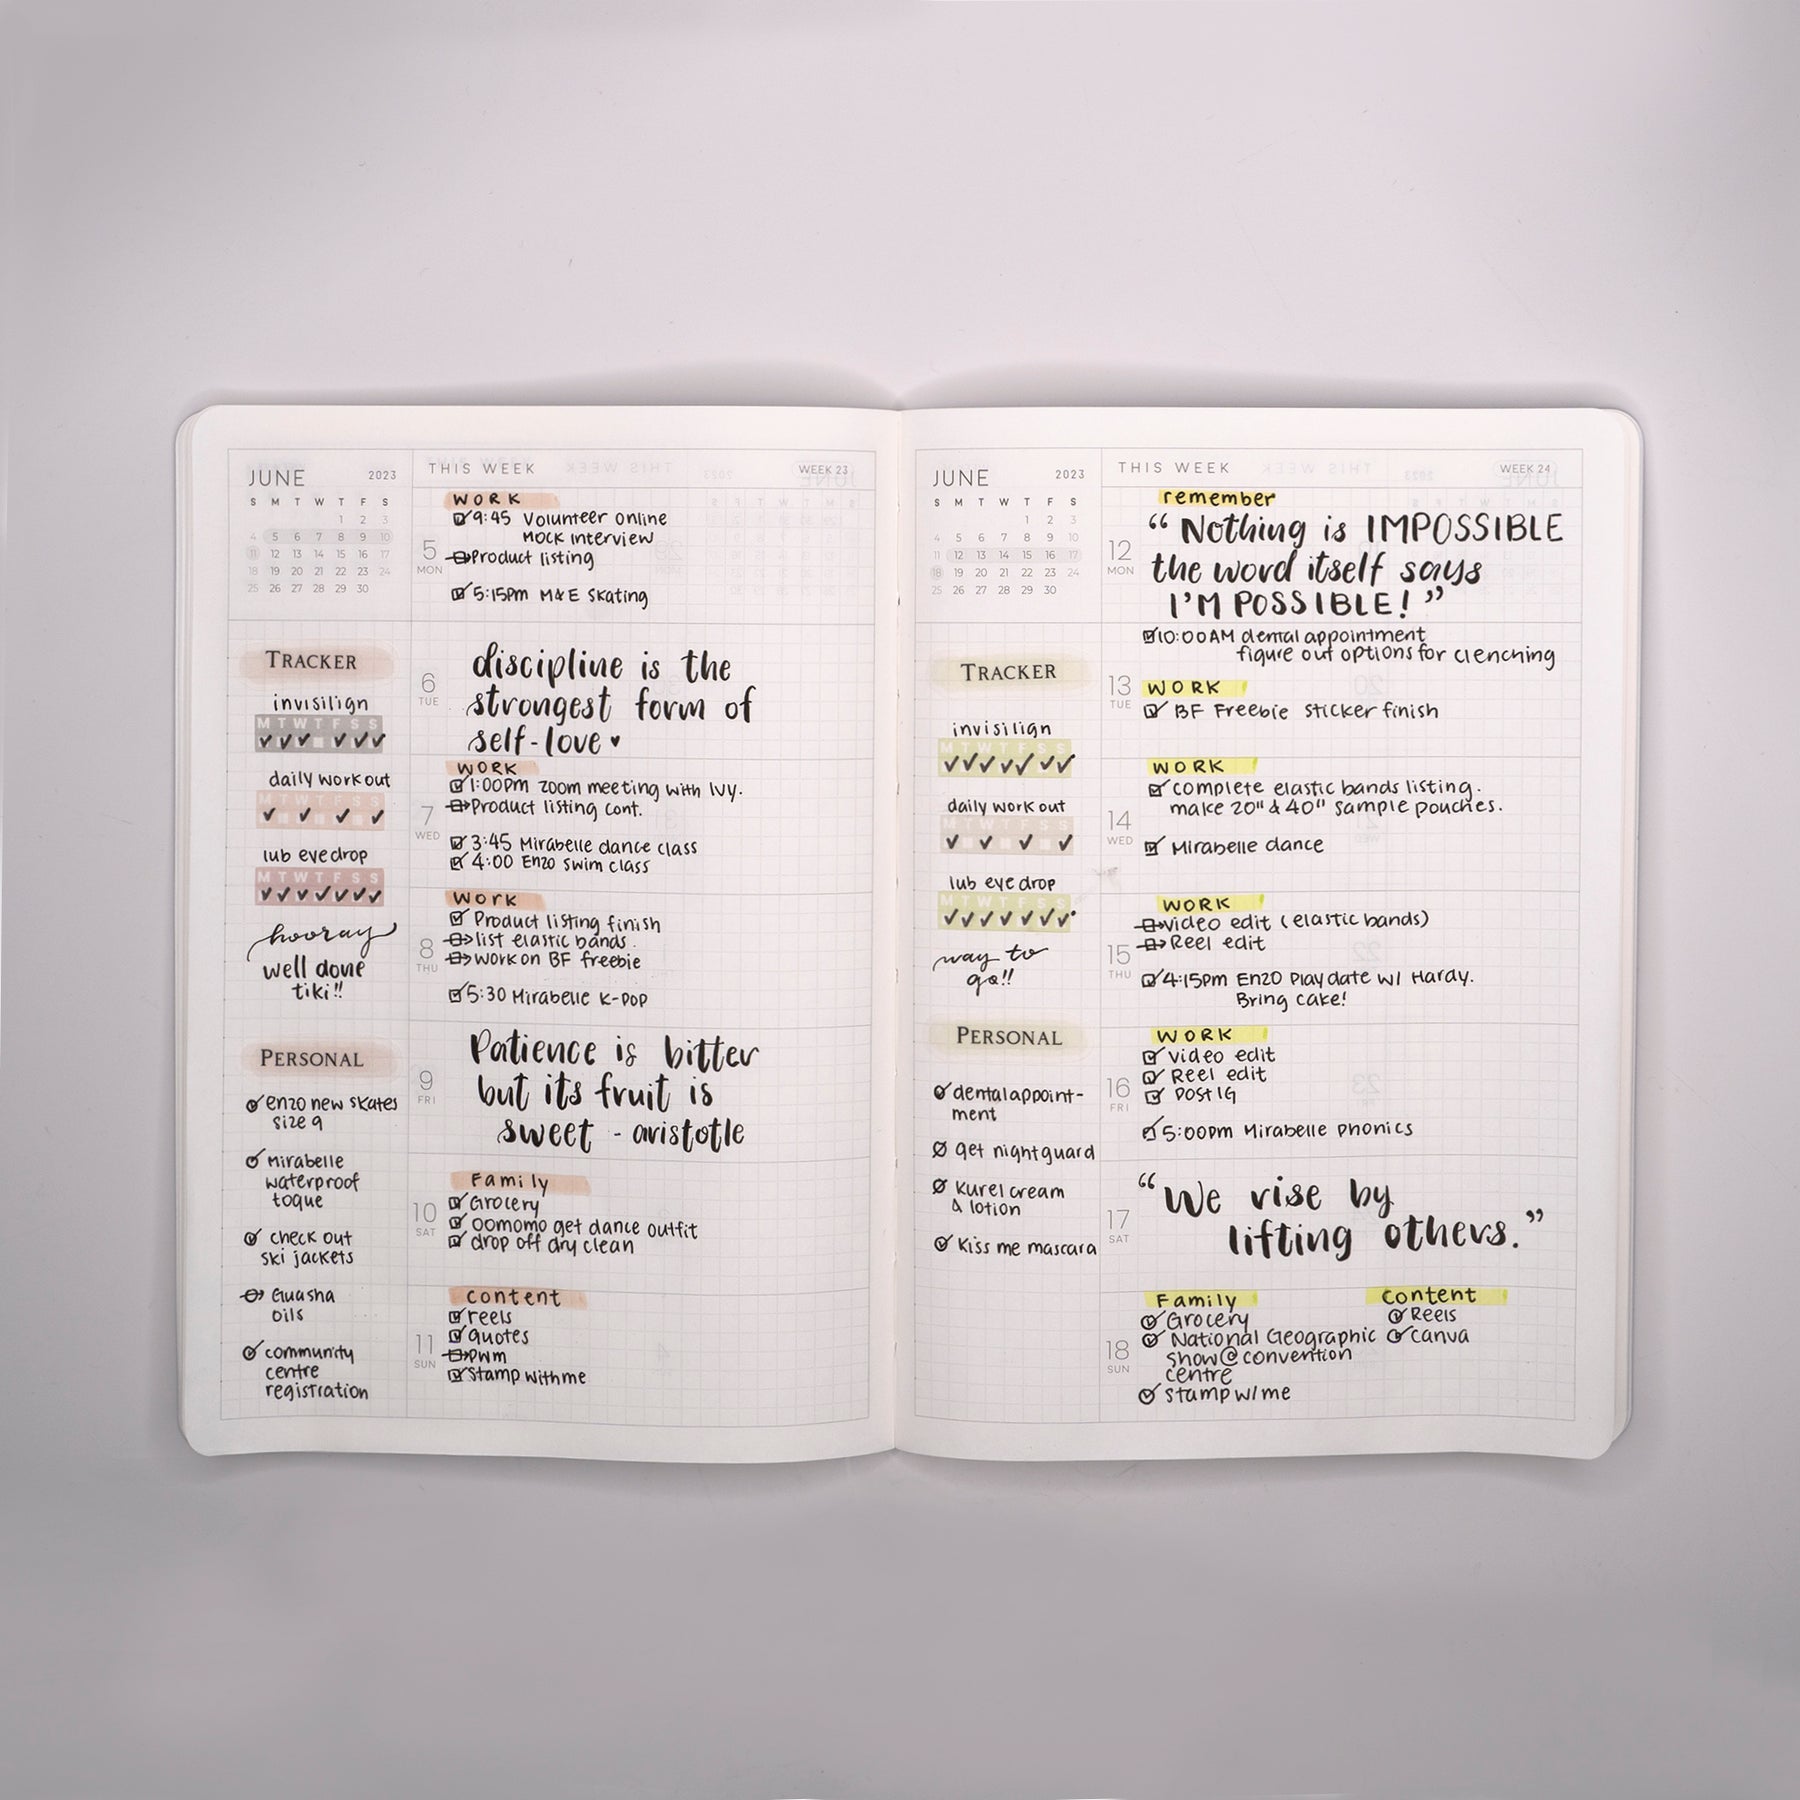 JUNE 2023
S M T W T F S
1 2 3
4 5 6 7 8 9 10
11 12 13 14 15 16 17
18 19 20 21 22 23 24
25 26 27 28 29 30
TRACKER
invisilign
M T W T F S S
daily work out
M T W T F S S
lub eyedrop
M T W T F S S
hooray
well done
tiki!!
PERSONAL
enzo new skates
size 9
Mirabelle
waterproof
toque
check out
ski jackets
Guasha
oils
community
centre
registration
THIS WEEK WEEK 23
5
MON
WORK
9:45 Volunteer online
Mock Interview
Product listing
5:15pm M&E Skating
6
TUE
discipline is the
strongest form of
self-love ♥
7
WED
WORK
1:00pm zoom meeting with Ivy.
Product listing cont.
3:45 Mirabelle dance class
4:00 Enzo swim class
8
THU
Work
Product listing finish
list elastic bands.
work on BF freebie
5:30 Mirabelle K-pop
9
FRI
Patience is bitter
but its fruit is
sweet - aristotle
10
SAT
Family
Grocery
oomomo get dance outfit
drop off dry clean
11
SUN
content
reels
quotes
pwm
Stamp with me
JUNE 2023
S M T W T F S
1 2 3
4 5 6 7 8 9 10
11 12 13 14 15 16 17
18 19 20 21 22 23 24
25 26 27 28 29 30
TRACKER
invisilign
M T W T F S S
daily work out
M T W T F S S
lub eye drop
M T W T F S S
way to
go!!
PERSONAL
dental appoint-
ment
get nightguard
Kurel cream
& lotion
Kiss me mascara
THIS WEEK WEEK 24
12
MON
remember
“Nothing is IMPOSSIBLE
the word itself says
I'M POSSIBLE!”
10:00AM dental appointment
figure out options for clenching
13
TUE
WORK
BF Freebie sticker finish
14
WED
WORK
complete elastic bands listing.
make 20" & 40" sample pouches.
Mirabelle dance
15
THU
WORK
video edit (elastic bands)
Reel edit
4:15pm Enzo Playdate w/ Hardy.
Bring cake!
16
FRI
WORK
video edit
Reel edit
Post IG
5:00pm Mirabelle Phonics
17
SAT
“We rise by
lifting others.”
18
SUN
Family
Grocery
National Geographic
show @ convention
centre
Stamp w/me
Content
Reels
canva